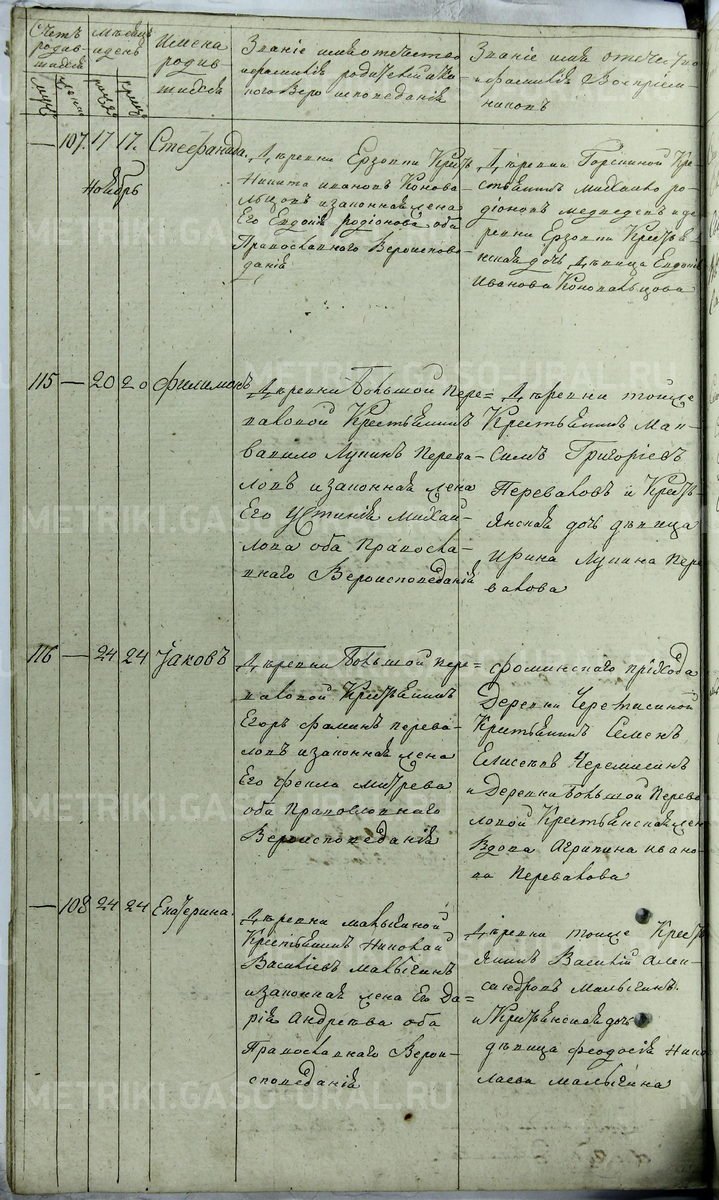 Счетъ родив-шихся
Мѣсяцъ и день
Имена родив-шихся
Званіе имя отечество и фамилія родителей и какого Вероисповеданія
Званіе имя отечество и фамилія Воспріем-никовъ
муж
жен
рожд
крещ
— 107. 17 17. Стефанида.
Ноябрь
Деревни Ерзовки Крестьян
Никита Ивановъ Конова-
льцовъ и законная жена
Его Евдокія родіонова оба
Православнаго Вероиспове-
данія
Деревни Горскиной Кре-
стьянинъ Михайло ро-
діоновъ медведевъ и де-
ревни Ерзовки Крестья-
нская дочь дѣвица Евдокія
Иванова Коновальцова
115 — 20 20 филимонъ
Деревни Большой пере-
валовой Крестьянинъ
Вавило Лупинъ Перева-
ловъ и законная жена
Его Устинія Михай-
лова оба Правосла-
внаго Вероисповеданія
Деревни тойже
Крестьянинъ Мак-
симъ Григоріевъ
Переваловъ и Кресть-
янская дочь дѣвица
Ирина Лупина Пере
валова
116 — 24 24 Іаковъ
Деревни Большой пере-
валовой Крестьянинъ
Егоръ фаминъ перева-
ловъ и законная жена
Его фекла митрева
оба Православнаго
Вероисповеданія
фоминскаго прихода
Деревни Черемисиной
Крестьянинъ Семенъ
Елисеевъ Черемисинъ
и Деревни Большой Перева
ловой Крестьянская жен
Вдова Агрипина Ивано-
ва Перевалова
— 108 24 24 Екатерина.
Деревни малыгиной
Крестьянинъ Николай
Василіевъ Малыгинъ
и законная жена Его Да-
рія Андреева оба
Православнаго Верои-
споведанія
Деревни тойже Кресть
янинъ Василій Алек-
сандровъ Малыгинъ
и Крестьянская дочь
дѣвица феодосія Нико
лаева малыгина
METRIKI.GASO-URAL.RU
METRIKI.GASO-URAL.RU
METRIKI.GASO-URAL.RU
METRIKI.GASO-URAL.RU
METRIKI.GASO-URAL.RU